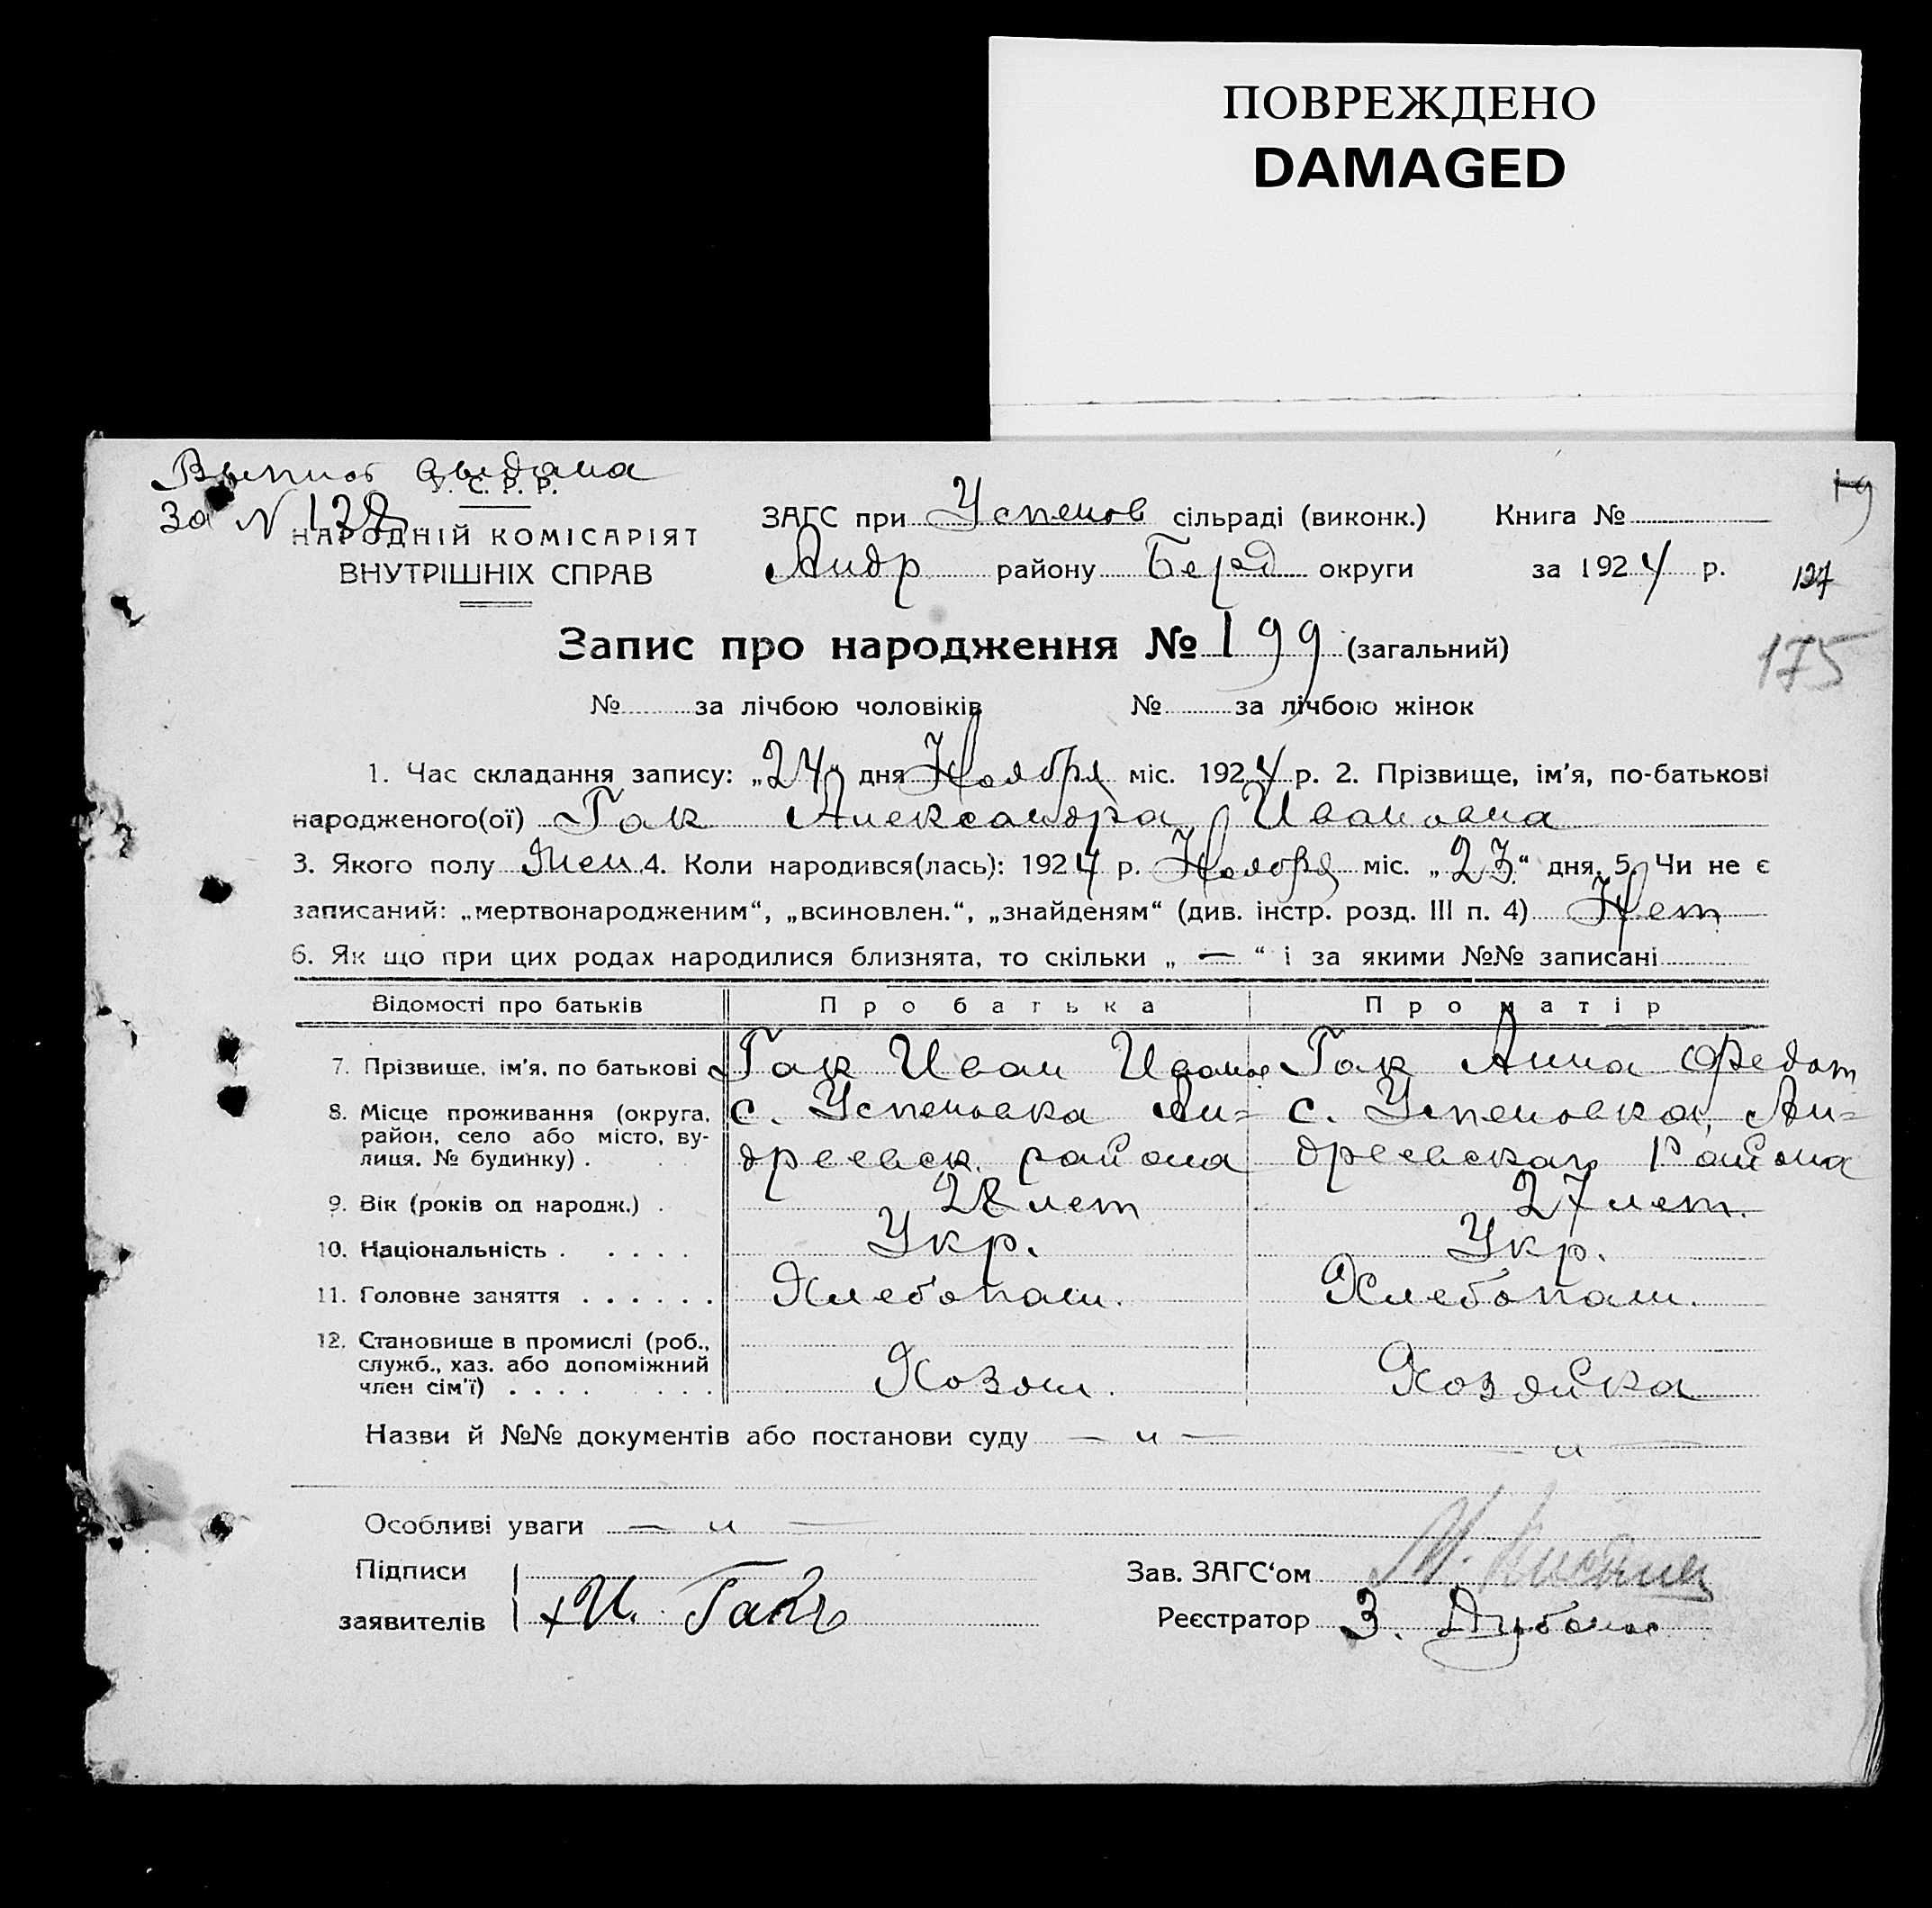 ПОВРЕЖДЕНО
DAMAGED
выдана
У. С. Р. Р.
За N 138
НАРОДНІЙ КОМІСАРІЯТ
ВНУТРІШНІХ СПРАВ
ЗАГС при Успенов сільраді (виконк.) Книга №
19
Андр району Берд округи за 1924 р.
127
Запис про народження № 199 (загальний)
175
№ за лічбою чоловіків № за лічбою жінок
1. Час складання запису: „24“ дня Ноября міс. 1924 р. 2. Прізвище, ім'я, по-батькові
народженого(ої) Гак Александра Ивановна
3. Якого полу Жен 4. Коли народився(лась): 1924 р. Ноября міс. „23“ дня. 5. Чи не є
записаний: „мертвонародженим“, „всиновлен.“, „знайденям“ (див. інстр. розд. III п. 4) Нет
6. Як що при цих родах народилися близнята, то скільки „ — “ і за якими №№ записані
Відомості про батьків Про батька Про матір
7. Прізвище, ім'я, по батькові Гак Иван Иванов Гак Анна Федот
8. Місце проживання (округа, с. Успеновка Ан= с. Успеновка, Ан=
район, село або місто, ву-
лиця, № будинку) . дреевск. района дреевскаго Района
9. Вік (років од народж.) . 28 лет 27 лет.
10. Національність . . . . . Укр. Укр.
11. Головне заняття . . . . . . Хлебопаш. Хлебопаш.
12. Становище в промислі (роб.,
служб., хаз. або допоміжний
член сім'ї) . . . . . . . Хозяин. Хозяйка
Назви й №№ документів або постанови суду — и — — и —
Особливі уваги — и —
Підписи
Зав. ЗАГС‘ом
заявителів + И. Гакъ
Реєстратор З.